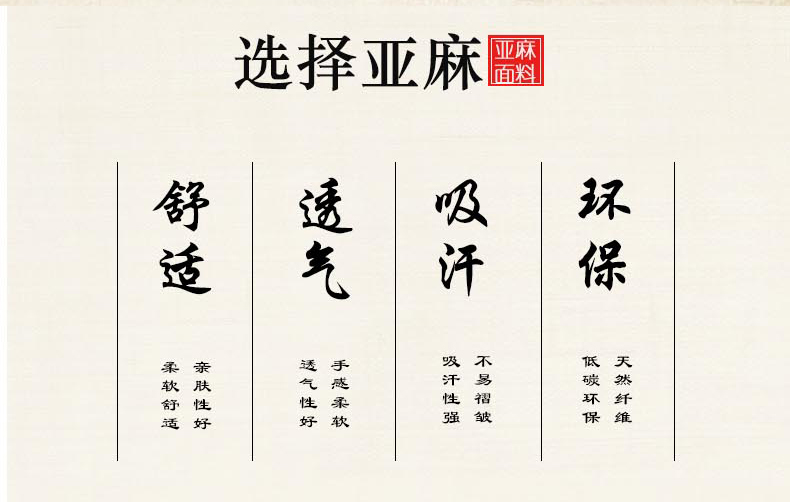 选择亚麻
亚麻
面料
舒适
亲肤性好
柔软舒适
透气
手感柔软
透气性好
吸汗
不易褶皱
吸汗性强
环保
天然纤维
低碳环保